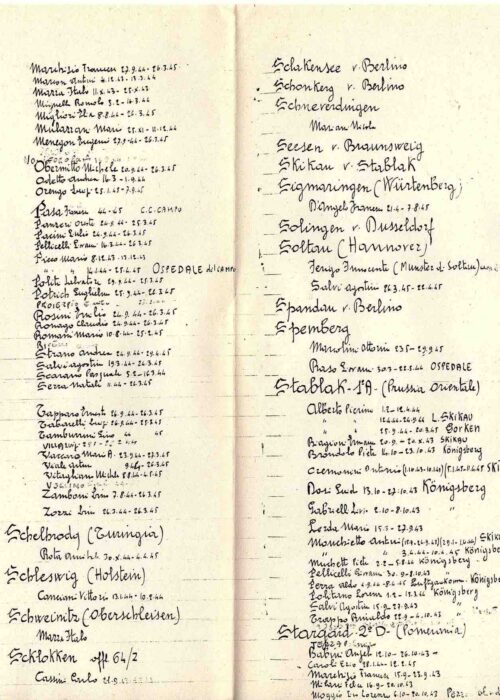 Marchizio Francesco 27.9.44 - 26.3.45
Marzon Antonio 4.12.43 - 13.3.44
Mazza Italo 11.x.43 - 25.x.43
Minguell Romolo 3.2 - 16.3.44
Migliori Pla 8.8.44 - 26.3.45
Mularzan Mario 25.XI - 11.12.44
Menegon Eugenio 27.9.44 - 26.3.45
Obermitto Michele 20.9.44 - 26.3.45
Odetto Andrea 16.3 - 1.9.44
Orengo Luigi 25.1.45 - 7.9.45
Pasa 44-45 C.C. CAMPO
Panzeri Oreste 24.9.44 - 25.3.45
Pacini Ezelio 26.9.44 - 26.3.45
Pellicelli Ermanno 16.3.44 - 26.3.45
Picco Mario 8.12.43 - 13.12.43
" " 16.1.44 - 25.4.45 OSPEDALE del CAMPO
Politi Salvatore 29.9.44 - 25.3.45
Potrich Guglielmo 25.9.44 - 26.3.45
Rosini Emilio 24.9.44 - 26.3.45
Romago Claudio 24.9.44 - 26.3.45
Romani Mario 10.8.44 - 25.2.45
Strano Andrea 24.9.44 - 29.4.45
Salvi Agostino 19.3.44 - 26.3.45
Scarano Pasquale 5.2 - 10.3.44
Serra Natale 11.44 - 26.3.45
Tapparo Ernesto 26.9.44 - 26.3.45
Tabarelli Luigi 26.9.44 - 25.3.45
Tamburini Livio 44 45
Varcaro Mario A. 23.9.44 - 27.3.45
Viale Artur 9.44 - 26.3.45
Vitagliani Michele 28.1.44 - 4.5.45
Zamboni Livio 7.8.44 - 26.3.45
Zozzi Livio 26.3.44 - 26.3.45
Schelbrody (Turingia)
Rota Annibale 30.X.44 - 4.4.45
Schleswig (Holstein)
Canciani Vittorio 13.1.44 - 10.9.44
Schweinitz (Oberschleisen)
Mazza Italo
Scklokken off 64/2
Cassini Carlo
Sclakensee v. Berlino
Schonkerg v. Berlino
Schneverdingen
Mariani Nicola
Seesen v. Braunsweig
Skikau v. Stablak
Sigmaringen (Würtenberg)
D'Angelo Francesco 21.4 - 7.8.45
Solingen v. Dusseldorf
Soltau (Hannover)
Ferigo Innocente (Munster d. Soltau)
Salvi Agostino 26.3.45 - 22.4.45
Spandau v. Berlino
Spemberg
Mariolini Ottorino 23.5 - 29.9.45
Praso Ermanno 30.3 - 22.8.44 OSPEDALE
Stablak - 1ªA - (Prussia Orientale)
Alberto Pierino 1.2 - 12.4.44
" " 12.4.44 - 24.9.44 L. SKIKAU
" " 25.9.44 - 20.3.45 GORKEN
Bagioni Ermanno 20.9 - 20.x.43 SKIKAU
Brondolo Pietro 14.10 - 23.10.43 Königsberg
Cremonini Antonio
Dosi Eud 13.10 - 27.10.43 Königsberg
Gabrielli Livio 2.10 - 8.10.43 "
Lozda Mario 15.3 - 27.9.43
Monchietto Antonio
" " 3.4.44 - 10.4.45 Königsberg
Muchetti Pietro 2.2 - 5.8.44 Königsberg
Pellicelli Ermanno 30.9 - 8.10.43 "
Politano Lorenzo 1.2 - 12.2.44 Königsberg
Salvi Agostino 15.9 - 27.9.43 "
Trappo Rinaldo 22.9 - 4.10.43 "
Stargard 2ªD - (Pomerania)
Babini Angelo 12.10 - 26.10.43
Caroli Ezio 28.1.44 - 12.2.45
Marchizio Francesco 15.9 - 23.9.43
Milani Felice 16.9 - 20.10.43